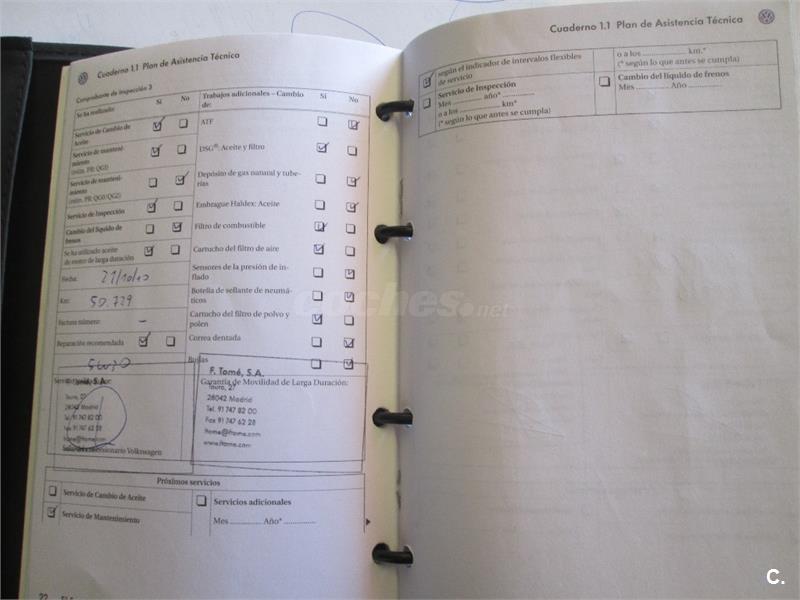 Cuaderno 1.1 Plan de Asistencia Técnica
Comprobante de inspección 3
Se ha realizado:
Sí
No
Servicio de Cambio de
Aceite
Servicio de manteni-
miento
(núm. PR: QG1)
Servicio de manteni-
miento
(núm. PR: QG0/QG2)
Servicio de Inspección
Cambio del líquido de
frenos
Se ha utilizado aceite
de motor de larga duración
Fecha:
21/10/10
Km:
50.729
Factura número:
–
Reparación recomendada
Trabajos adicionales – Cambio
de:
Sí
No
ATF
DSG®: Aceite y filtro
Depósito de gas natural y tube-
rías
Embrague Haldex: Aceite
Filtro de combustible
Cartucho del filtro de aire
Sensores de la presión de in-
flado
Botella de sellante de neumá-
ticos
Cartucho del filtro de polvo y
polen
Correa dentada
Bujías
Tomé, S.A.
Tauro, 27
28042 Madrid
Tel. 91 747 82 00
Fax 91 747 62 28
ftome@ftome.com
Sello del concesionario Volkswagen
F. Tomé, S.A.
Garantía de Movilidad de Larga Duración:
Tauro, 27
28042 Madrid
Tel. 91 747 82 00
Fax 91 747 62 28
ftome@ftome.com
www.ftome.com
Próximos servicios
Servicio de Cambio de Aceite
Servicio de Mantenimiento
Servicios adicionales
Mes .............. Año* ..............
Cuaderno 1.1 Plan de Asistencia Técnica
según el indicador de intervalos flexibles
de servicio
Servicio de Inspección
Mes .............. año* ..............
o a los .............. km*
(* según lo que antes se cumpla)
o a los .............. km.*
(* según lo que antes se cumpla)
Cambio del líquido de frenos
Mes .............. Año ..............
coches.net
C.